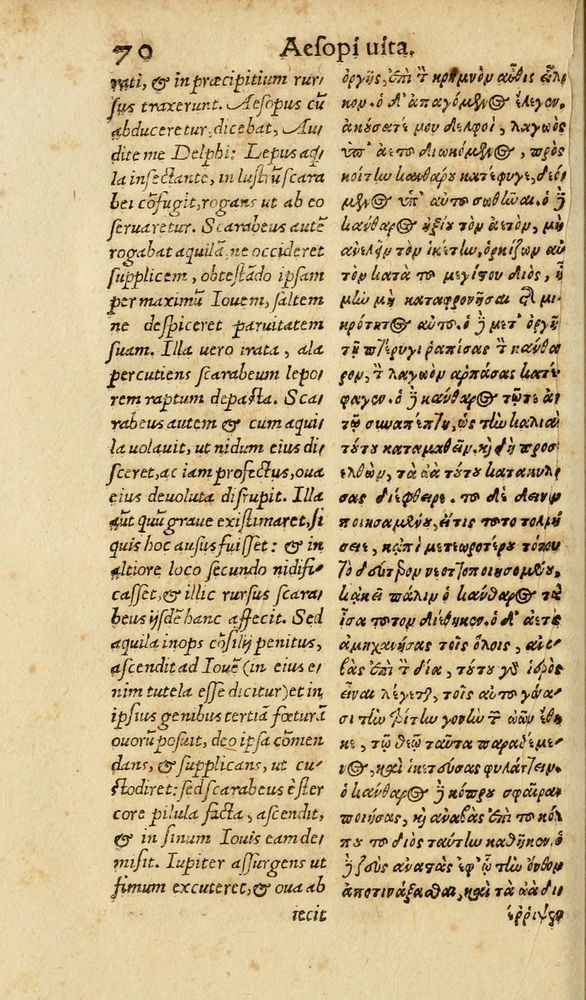 70 Aesopi uita.
rati, & in præcipitium rur/
sus traxerunt. Aesopus cũ
abduceretur, dicebat, Au/
dite me Delphi: Lepus aq́/
la insectante, in lustrũ scara
bei cõfugit, rogans ut ab eo
seruaretur. Scarabeus autẽ
rogabat aquilã, ne occideret
supplicem, obtestãdo ipsam
per maximũ Iouem, saltem
ne despiceret paruitatem
suam. Illa uero irata, ala
percutiens scarabeum lepo/
rem raptum depasta. Sca/
rabeus autem & cum aqui/
la uolauit, ut nidum eius di/
sceret, ac iam profectus, oua
eius deuoluta disrupit. Illa
aũt quũ graue existimaret, si
quis hoc ausus fuisset: & in
altiore loco secundo nidifi/
casset, & illic rursus scara/
beus ijsdẽ hanc affecit. Sed
aquila inops cõsilij penitus,
ascendit ad Iouẽ (in eius e/
nim tutela esse dicitur) et in
ipsius genibus tertiã fœturã
ouorũ posuit, deo ipsa cõmen
dans, & supplicans, ut cu/
stodiret: sed scarabeus è ster
core pilula facta, ascendit,
& in sinum Iouis eam de/
misit. Iupiter assurgens ut
fimum excuteret, & oua ab
iecit
ὀργῆς, ἐπὶ τ̃ κρημνὸν αὖθις εἷλ-
κον. ὁ δ' ἀπαγόμενος ἔλεγεν,
ἀκούσατέ μου δελφοὶ, λαγωὸς
ὑπ' ἀετοῦ διωκόμενος, πρὸς
κοίτην κανθάρου κατέφυγε, δεό
μενος ὑπ' αὐτοῦ σωθῆναι. ὁ ἢ
κάνθαρος ἠξίου τὸν ἀετὸν, μὴ
ἀνελεῖν τὸν ἱκέτην, ὁρκίζων αὐ
τὸν κατὰ τοῦ μεγίστου διὸς, ἦ
μὴν μὴ καταφρονῆσαι τ̃ μι-
κρότητος αὐτοῦ. ὁ ἢ μετ' ὀργῆς
τῇ πτέρυγι ῥαπίσας τ̃ κάνθα
ρον, τ̃ λαγωὸν ἁρπάσας κατέ
φαγεν. ὁ ἢ κάνθαρος τῷ τε ἀε
τῷ συναπέπτη, ὡς τὴν καλιὰν
τούτου καταμαθεῖν. καὶ δὴ προσ
ελθὼν, τὰ ὠὰ τούτου κατακυλί
σας διέφθειρε. τοῦ δὲ δεινὸν
ποιησαμένου, εἴ τις τοῦτο τολμή
σειε, καπὶ μετεωροτέρου τόπου
τὸ δεύτερον νεοττοποιησαμένου,
κἀκεῖ πάλιν ὁ κάνθαρος τὰ
ἴσα τοῦτον διέθηκεν. ὁ δ' ἀετὸς
ἀμηχανήσας τοῖς ὅλοις, ἀνα-
βὰς ἐπὶ τ̃ δία, τούτου γὰρ ἱερὸς
εἶναι λέγεται, τοῖς αὐτοῦ γόνα-
σι τὴν τρίτην γονὴν τ̃ ὠῶν ἔθη
κε, τῷ θεῷ ταῦτα παραθέμε-
νος, καὶ ἱκετεύσας φυλάττειν.
ὁ κάνθαρος ἢ κόπρου σφαῖραν
ποιήσας, καὶ ἀναβὰς ἐπὶ τοῦ κόλ
που τοῦ διὸς ταύτην καθῆκεν. ὁ
ἢ ζεὺς ἀναστὰς ἐφ' ᾧ τὴν ὄνθον
ἀποτινάξασθαι, καὶ τὰ ὠὰ δι-
έῤῥιψεν